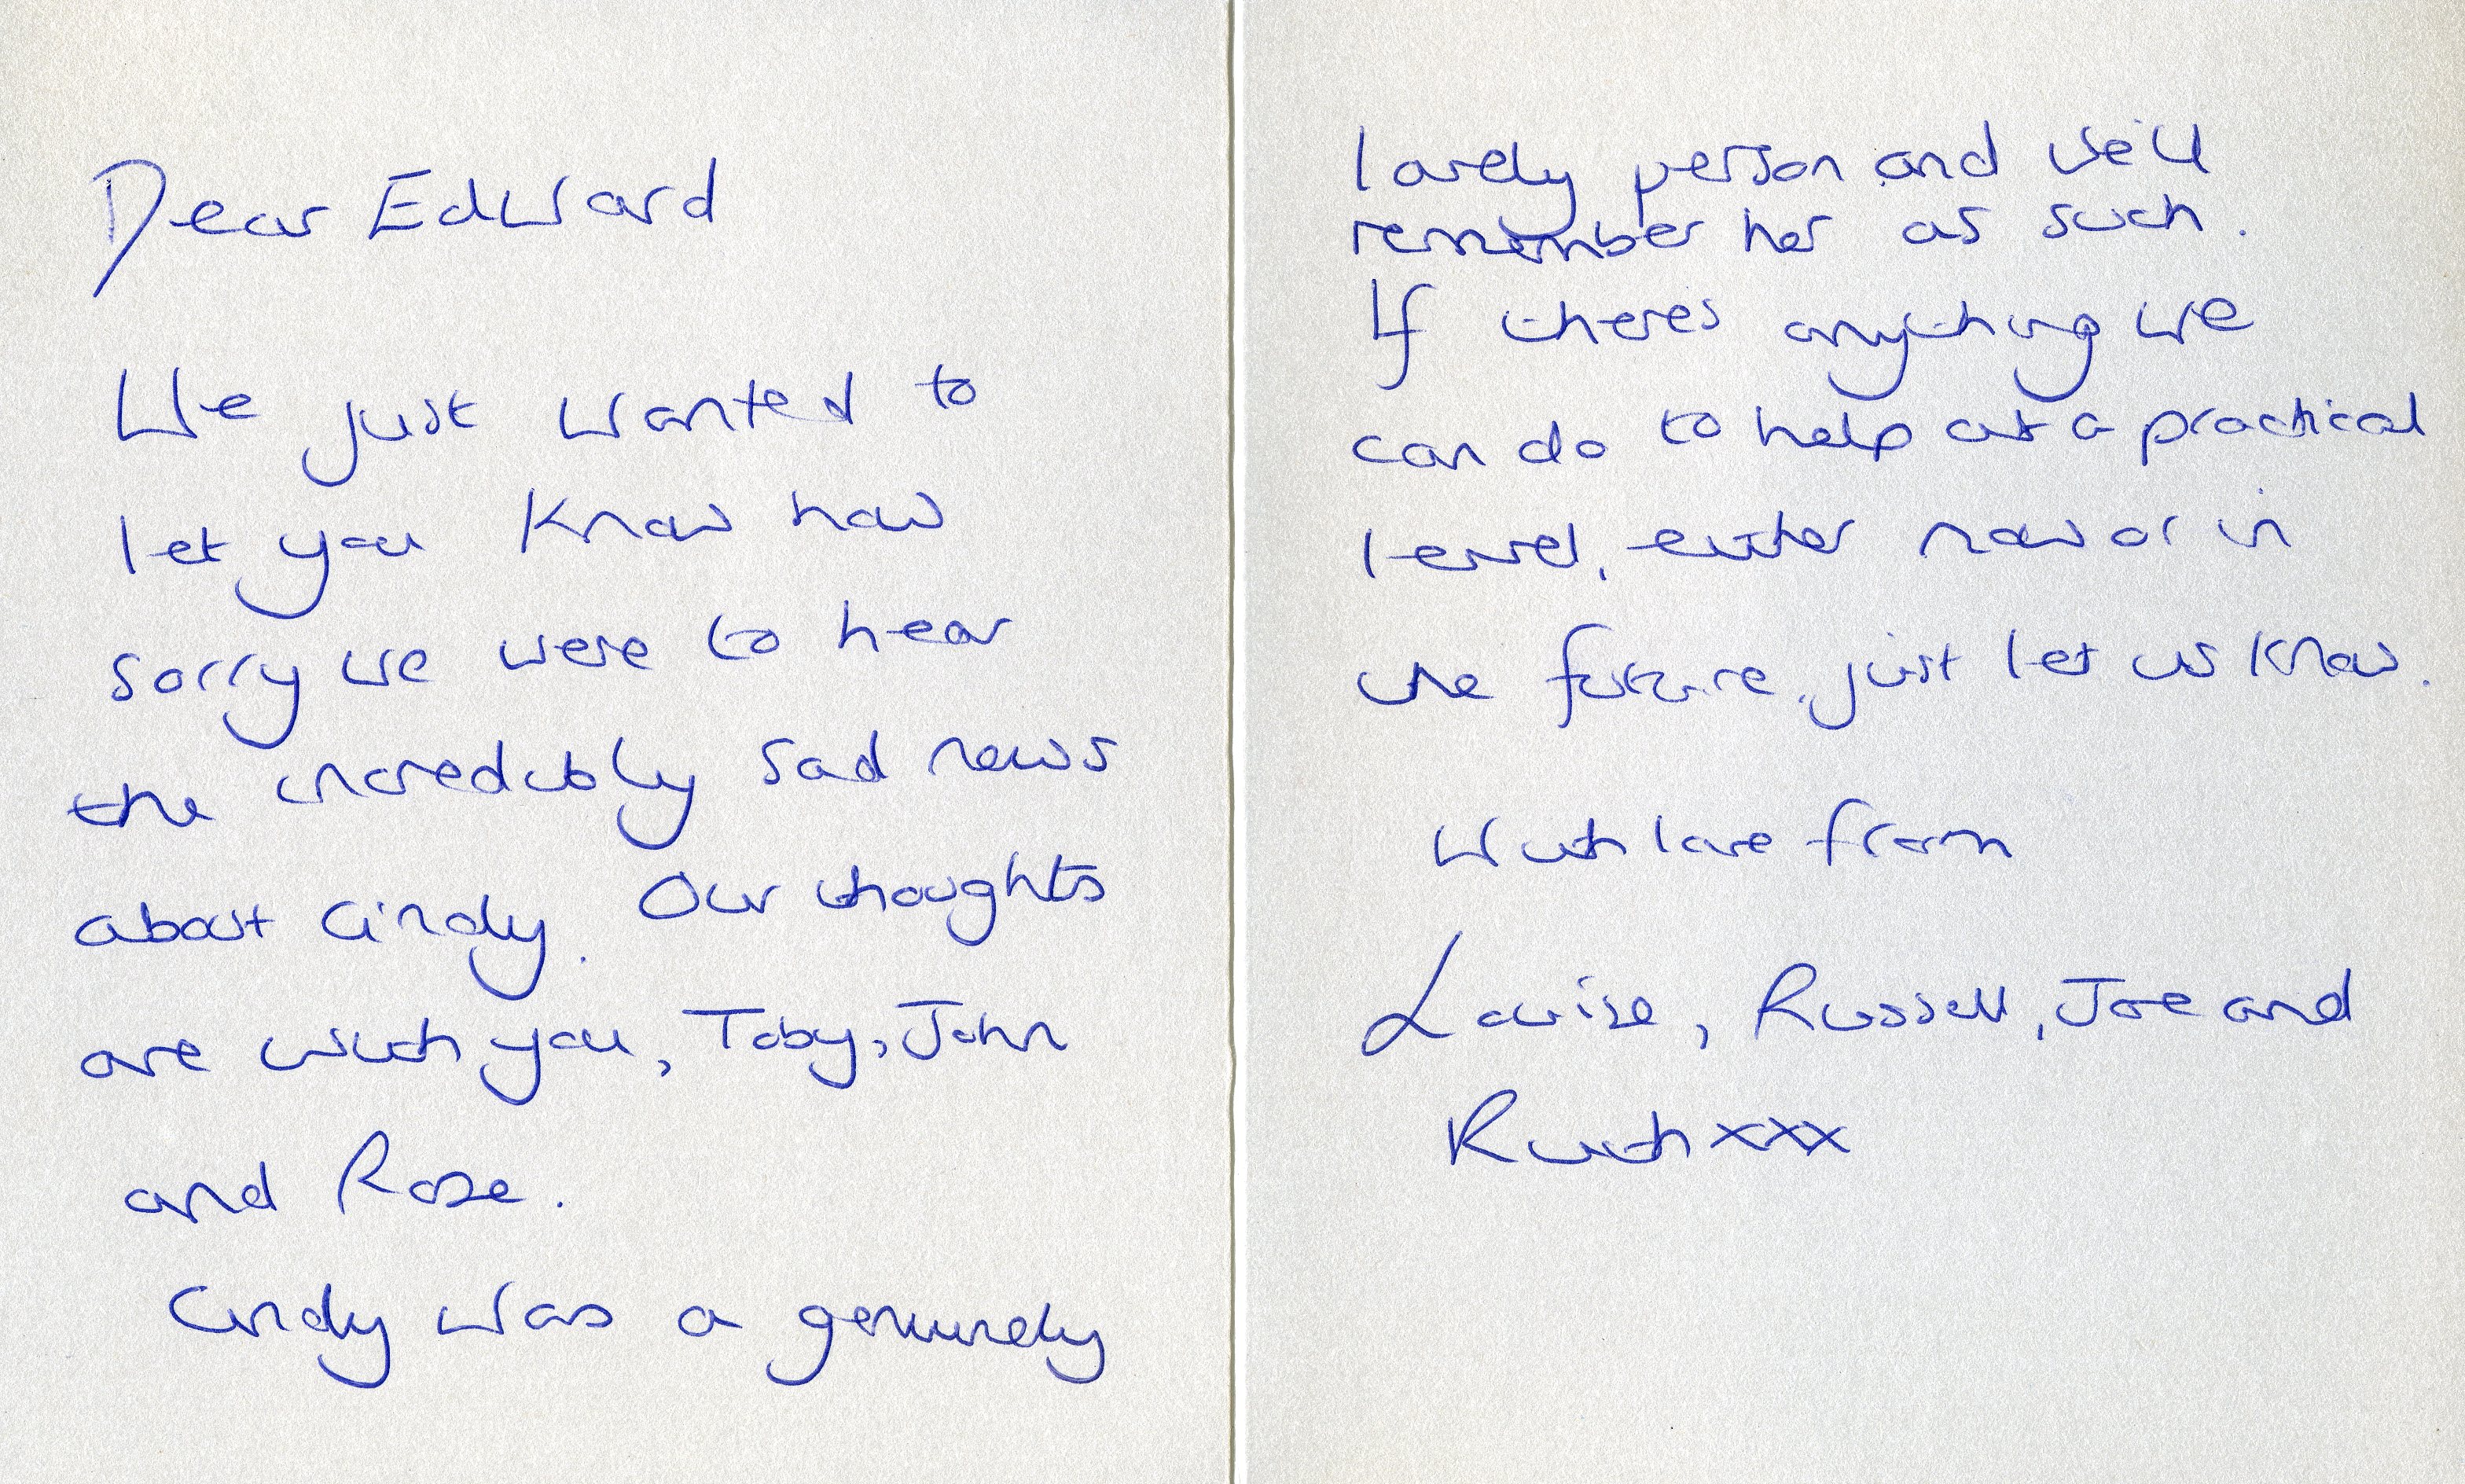 Dear Edward
We just wanted to
let you know how
sorry we were to hear
the incredibly sad news
about Cindy. Our thoughts
are with you, Toby, John
and Rose.
Cindy was a genuinely
lovely person and we'll
remember her as such.
If theres anything we
can do to help at a practical
level, either now or in
the future, just let us know.
With love from
Louise, Russell, Joe and
Ruth xxx